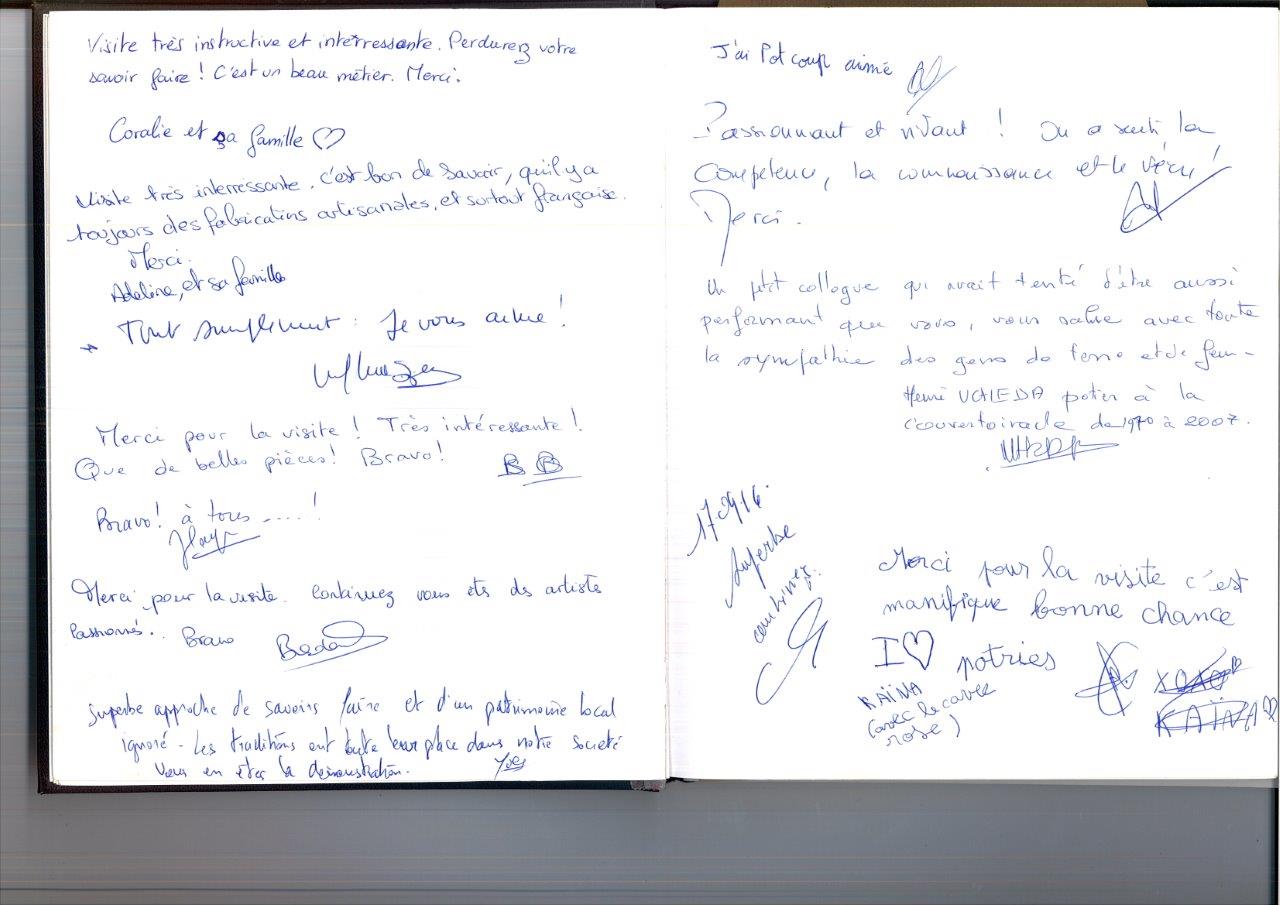 Visite très instructive et interressante. Perdurez votre
savoir faire ! C'est un beau métier. Merci.
Coralie et sa famille ♡
Visite très interressante. c'est bon de savoir, qu'il y a
toujours des fabrications artisanales, et surtout française.
Merci.
Adeline, et sa famille
Tout simplement : Je vous aime !
Merci pour la visite ! Très intéressante !
Que de belles pièces ! Bravo !
BB
Bravo ! à tous ..... !
Merci pour la visite. Continuez vous ets des artistes
Passionnés.. Bravo
Superbe approche de savoirs faire et d'un patrimoine local
ignoré - Les traditions ont toute leur place dans notre société
Vous en êtes la démonstration.
Yves
J'ai Pot coup aimé
Passionnant et vivant ! On a senti la
compétence, la connaissance et le vécu !
Merci.
Un petit collegue qui avait tenté d'être aussi
performant que vous, vous salue avec toute
la sympathie des gens de terre et de feu -
Henri potier à la
couvertoirade de 1970 à 2007.
Superbe
continuez
Merci pour la visite c'est
manifique bonne chance
I ♡ potries
KAÏNA
(avec le
rose)
xoxo
KAÏNA ♡